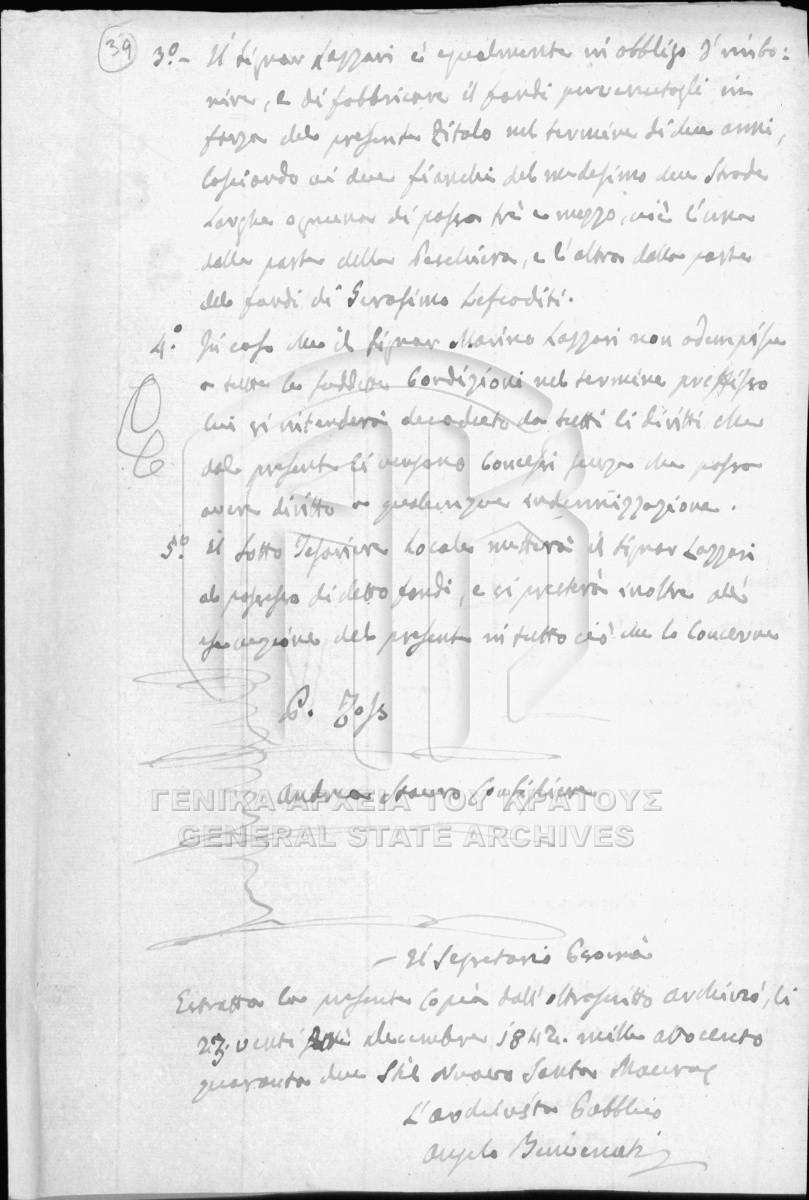 39
3º- Il Signor Lazzari è egualmente in obbligo d'imbo=
nire, e di fabbricare il fondi pervenutogli in
forza del presente Titolo nel termine di due anni,
lasciando ai due fianchi del medesimo due Strade
Larghe ognuna di passa trè e mezzo, cioè l'una
dalla parte della Peschiera, e l'altra dalla parte
del fondi di Gerasimo Lefcaditi.
4º. In caso che il Signor Marino Lazzari non adempisse
a tutte le suddette Condizioni nel termine prefisso
lui si intenderà decaduto da tutti li diritti che
dal presente li vengono Concessi senza che possa
avere diritto a qualunque indennizzazione.
5º. Il Sotto Tesoriere Locale metterà il Signor Lazzari
al possesso di detto fondi, e si presterà inoltre alla
esecuzione del presente in tutto ciò che lo Concerne
Andrea Stauro Consigliere
ΓΕΝΙΚΑ ΑΡΧΕΙΑ ΤΟΥ ΚΡΑΤΟΥΣ
GENERAL STATE ARCHIVES
- Il Segretario
Estratta la presente Copia dall'oltrescritto archivio, li
23. venti tre decembre 1842. mille ottocento
quaranta due Stil Nuovo Santa Maura
L'archivista Pubblico
Angelo